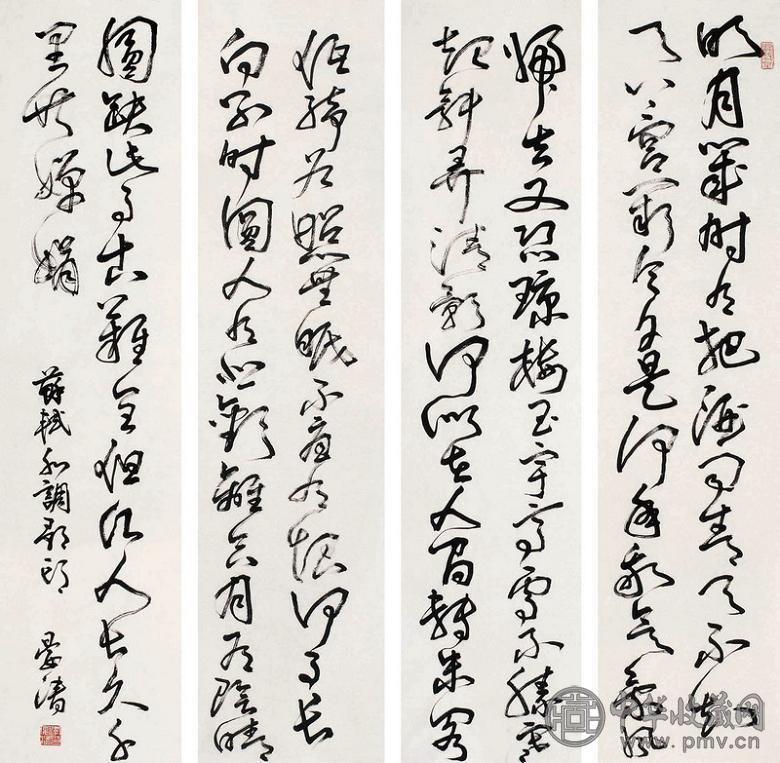 明月幾時有把酒問青天不知
天上宮闕今夕是何年我欲乘風
歸去又恐瓊樓玉宇高處不勝寒
起舞弄清影何似在人間轉朱閣
低綺戶照無眠不應有恨何事長
向別時圓人有悲歡離合月有陰晴
圓缺此事古難全但願人長久千
里共嬋娟
蘇軾水調歌頭
中华收藏网
www.pmv.cn